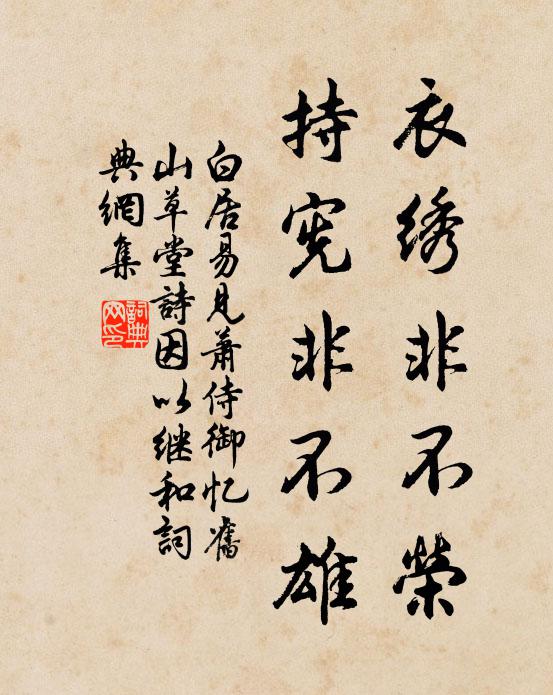 衣绣非不榮
持宪非不雄
白居易見萧侍御忆舊
山草堂詩因以继和詞
典網集
詞典
网印